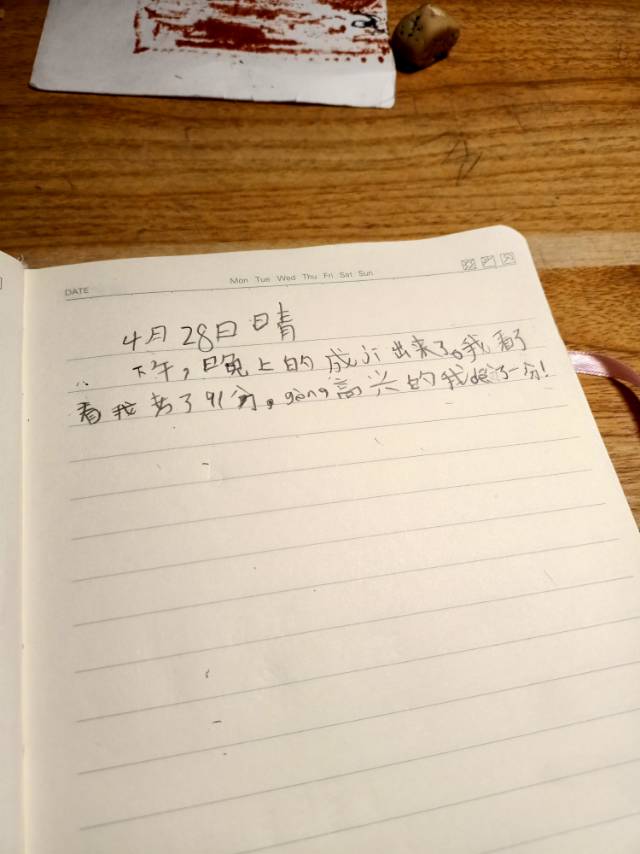 DATE
Mon Tue Wed Thu Fri Sat Sun
4月28日晴
下午,晚上的成ji出来了。我看了
看我考了91分,gèng高兴的我 了一分!